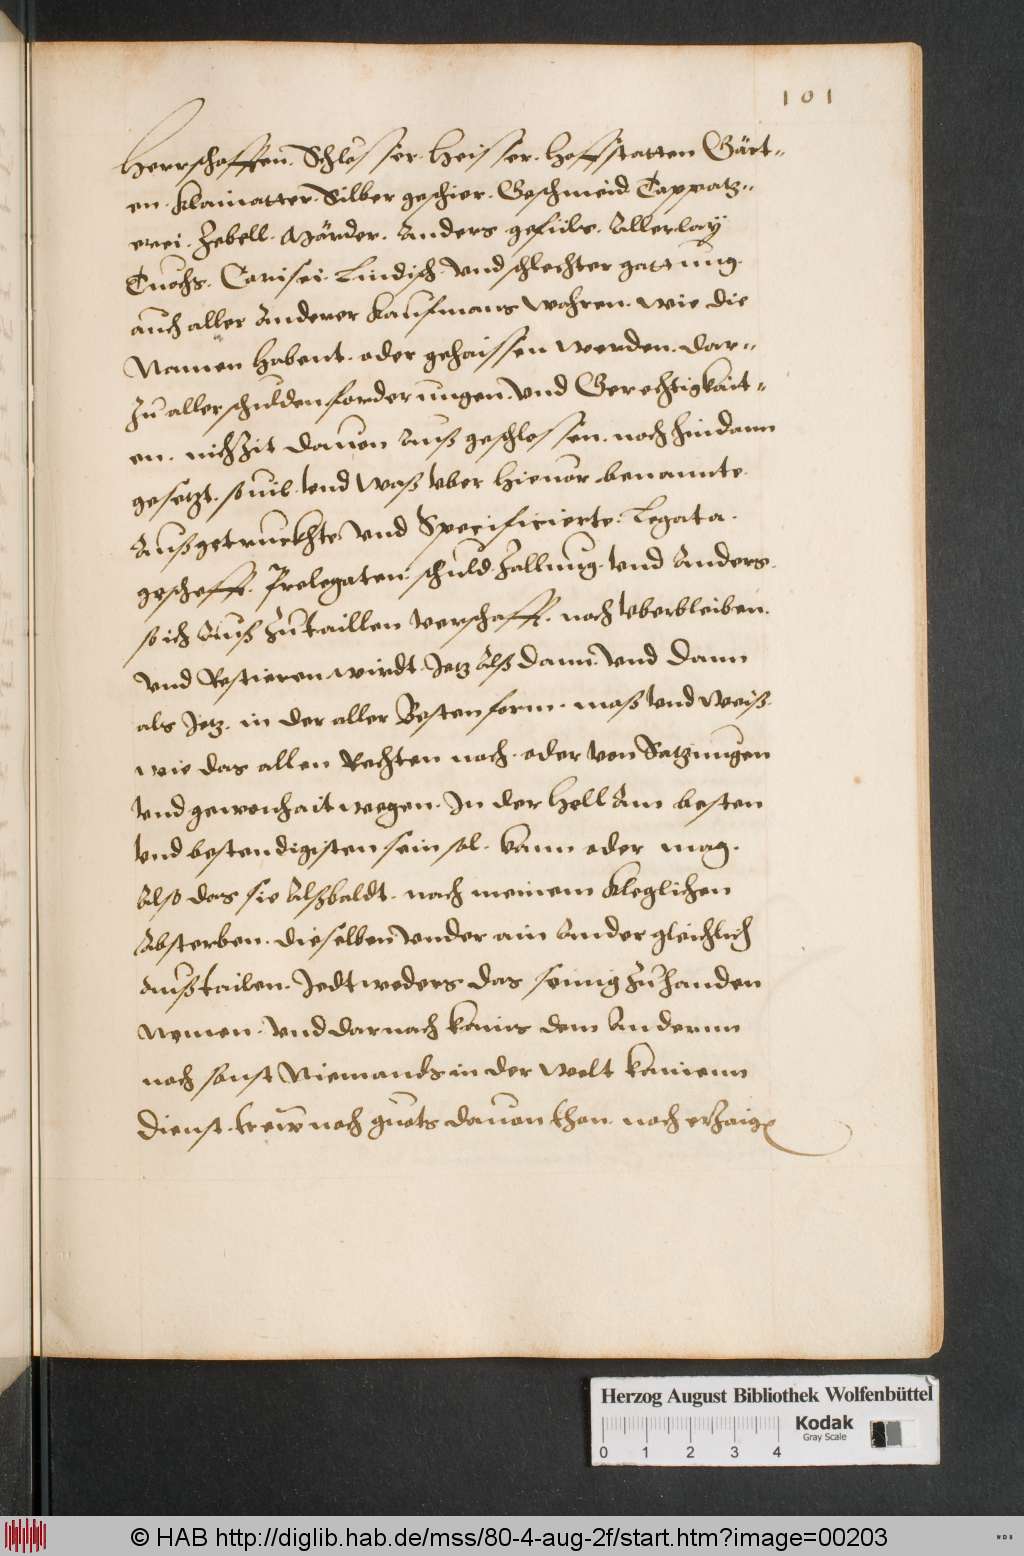 101
Herrschafften. Schlösser. Heisser. Hoffstatten Gärt=
en. Klainatter. Silber geschier. Geschmeid Tappatz=
erei. Zebell. Märder. Anders gefüls. Allerlay
Tuochs. Carisei. Lindisch. Vnd schlechter gattung.
auch aller Anderer Kaufmans wahren. wie die
Namen habent. oder gehaissen werden. dar=
Zu aller schulden forderungen. Vnd Gerechtigkait=
en. nichzit dauon Auß geschlossen. noch hindann
gesetzt. souil. Vnd waß Vber hieuor benannte.
Außgetruckhte Vnd Specificierte. Legata.
geschefft. Prelegaten. schuld Zallung. Vnd Anders.
so ich Auß Zutaillen Verschafft. noch Vberbleiben.
Vnd Restieren wirdt. Jetz Alß dann. Vnd dann
als Jetz. in der aller Besten form. maß Vnd weiß.
wie das allen Rechten nach. oder von Satzungen
Vnd gewonhait wegen. In der hell Am besten
Vnd bestendigisten sein sol. kann oder mag.
Also das sie Alßbaldt. nach meinem kleglichen
Absterben. dieselben Vnder ain Ander gleichlich
Außtailen. Jedtweders das seinig Zuhanden
Nemen. Vnd darnach kains dem Andernn
noch sonst Niemands in der welt kainenn
dienst. trew noch guots dauon thon. noch erzaigen
Herzog August Bibliothek Wolfenbüttel
Kodak
Gray Scale
0 1 2 3 4
© HAB http://diglib.hab.de/mss/80-4-aug-2f/start.htm?image=00203